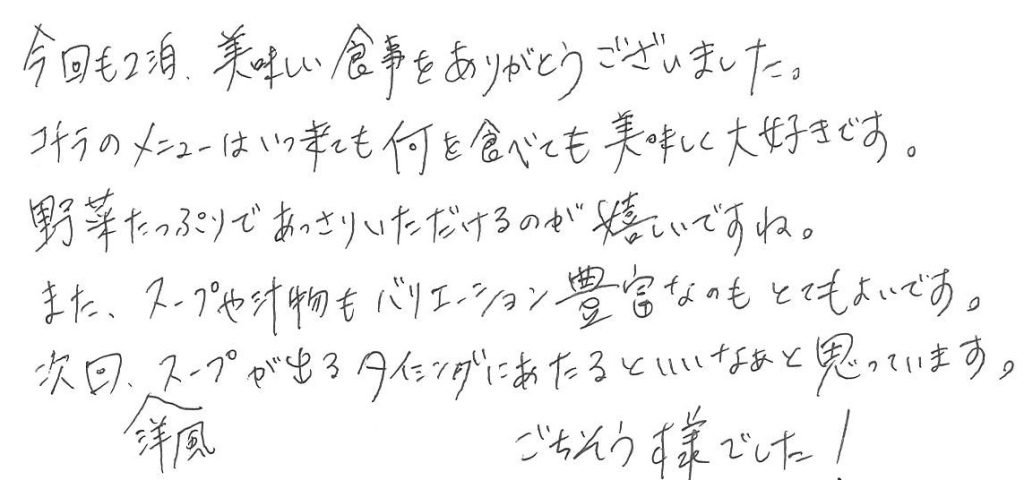 今回も2泊、美味しい食事をありがとうございました。
コチラのメニューはいつ来ても何を食べても美味しく大好きです。
野菜たっぷりであっさりいただけるのが嬉しいですね。
また、スープや汁物もバリエーション豊富なのもとてもよいです。
次回、スープが出るタイミングにあたるといいなぁと思っています。
洋風
ごちそう様でした!